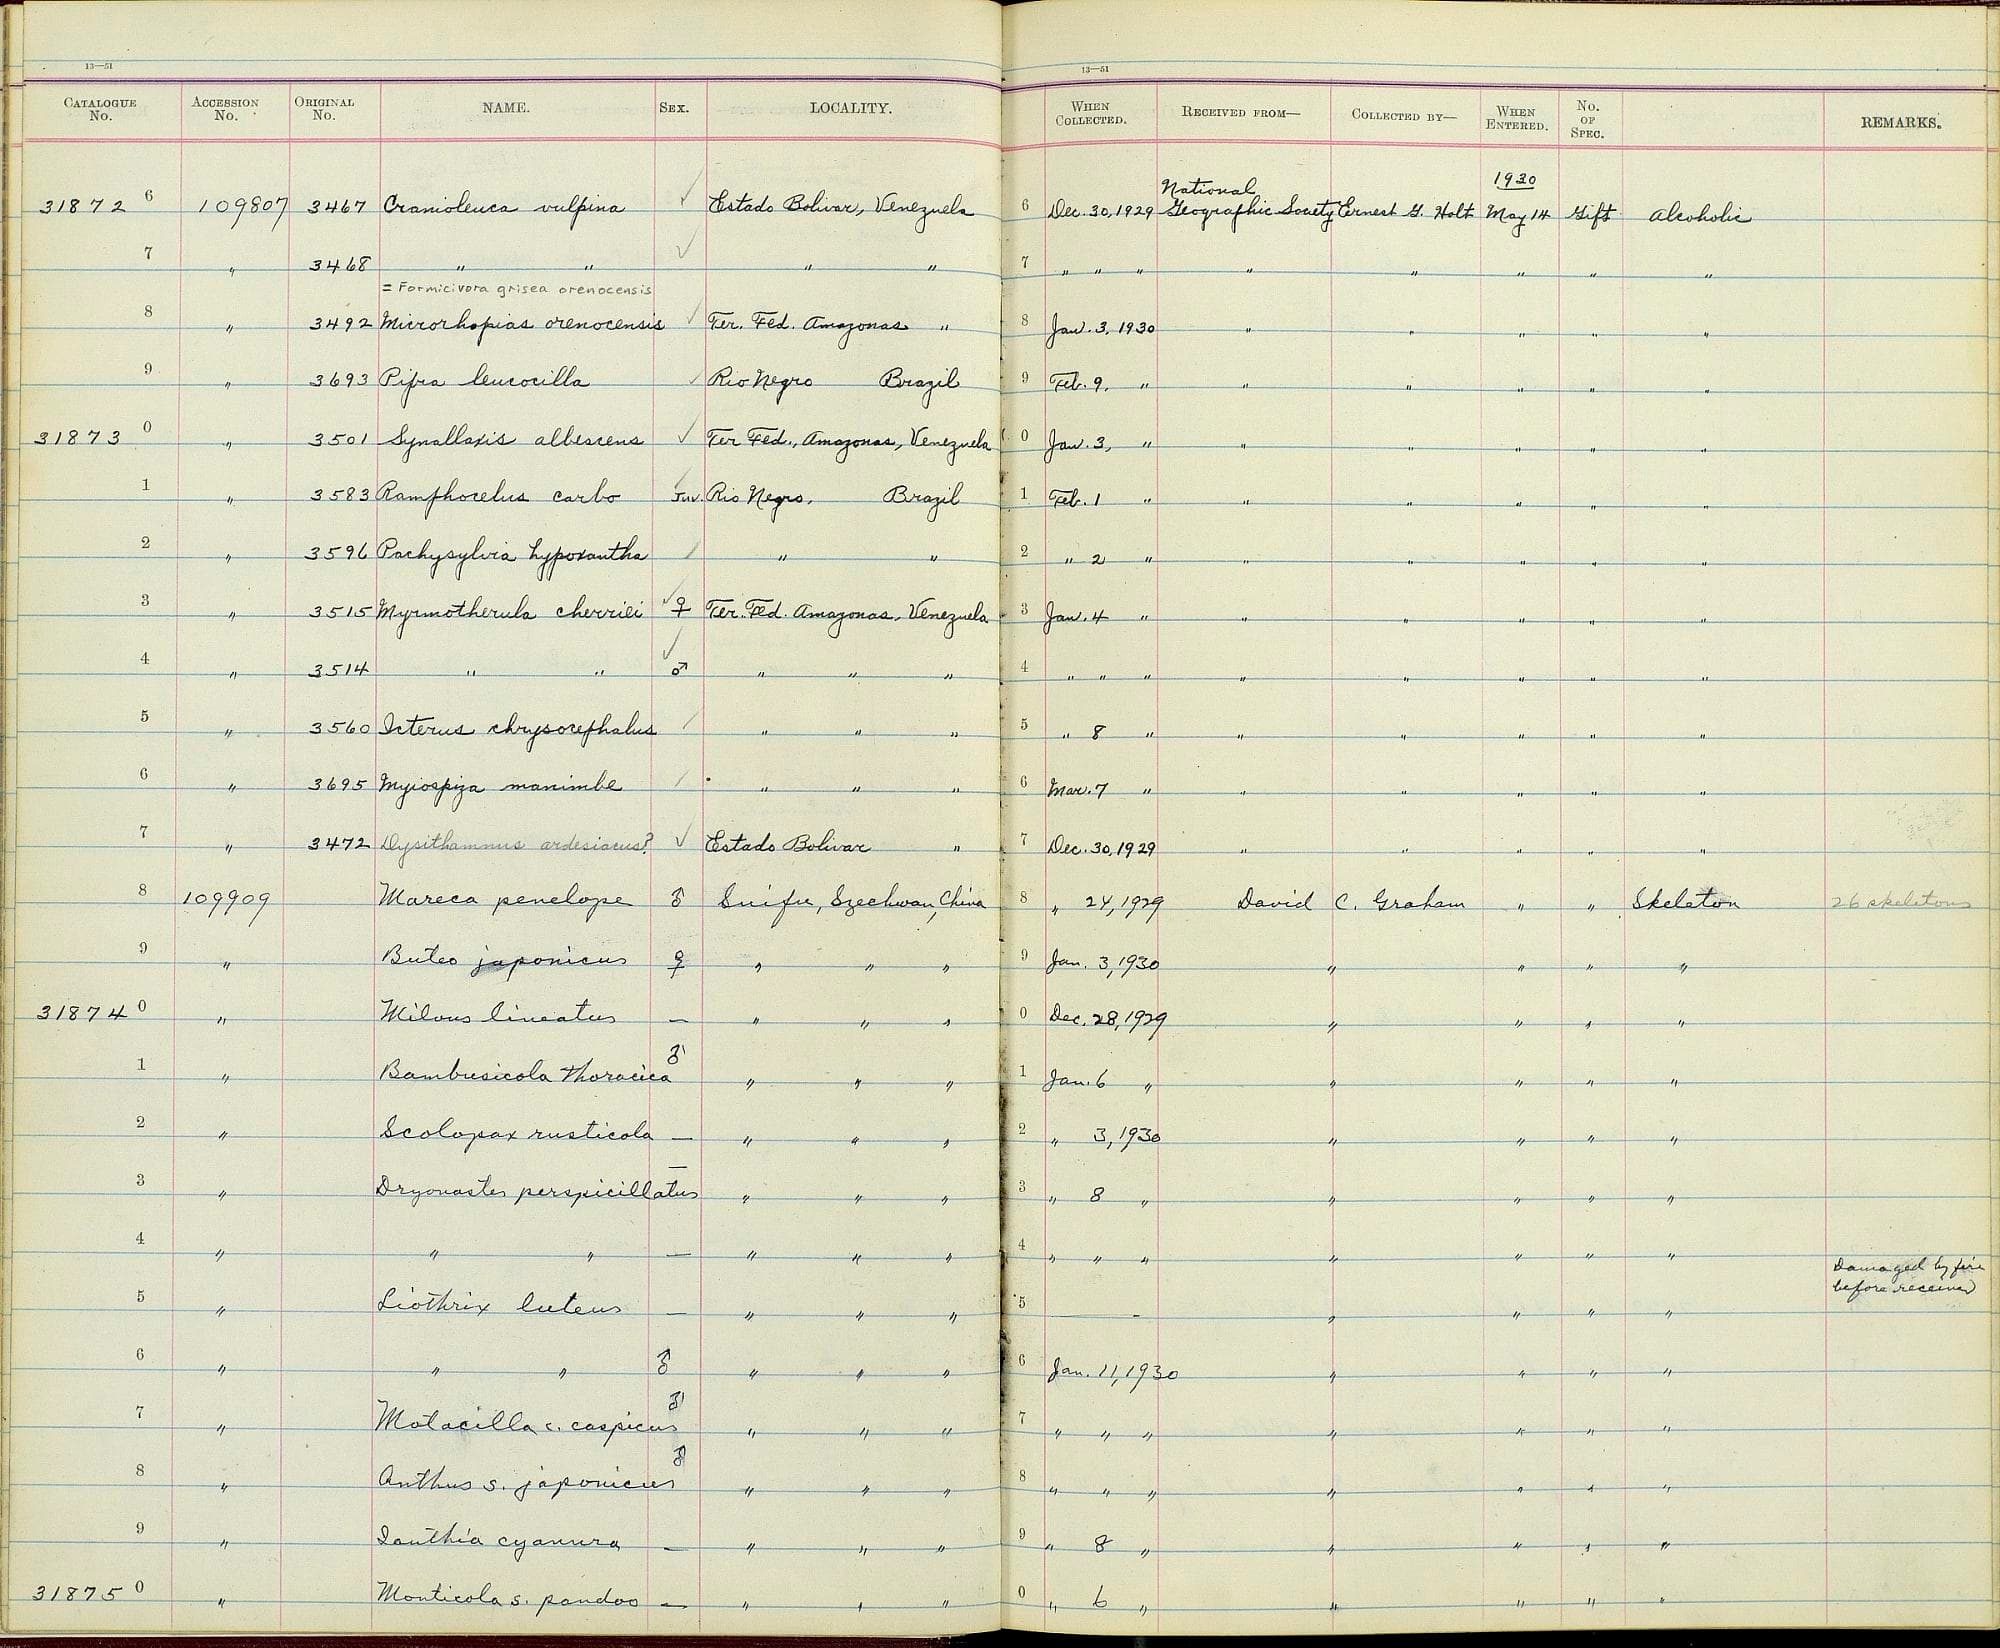 13—51 13—51
CATALOGUE No. ACCESSION No. ORIGINAL No. NAME. SEX. LOCALITY. WHEN COLLECTED. RECEIVED FROM— COLLECTED BY— WHEN ENTERED. NO. OF SPEC. REMARKS.
1930
National
31872 6 109807 3467 Cranioleuca vulpina ✓ Estado Bolivar, Venezuela 6 Dec. 30, 1929 Geographic Society Ernest G. Holt May 14 Gift Alcoholic
7 " 3468 " " ✓ " " 7 " " " " " " " "
= Formicivora grisea orenocensis
8 " 3492 Microrhopias orenocensis ✓ Ter. Fed. Amazonas " 8 Jan. 3, 1930 " " " " "
9 " 3693 Pipra leucocilla ✓ Rio Negro Brazil 9 Feb. 9, " " " " " "
31873 0 " 3501 Synallaxis albescens ✓ Ter Fed., Amazonas, Venezuela 0 Jan. 3, " " " " " "
1 " 3583 Ramphocelus carbo Juv. Rio Negro, Brazil 1 Feb. 1 " " " " " "
2 " 3596 Pachysylvia hypoxantha " " 2 " 2 " " " " " "
3 " 3515 Myrmotherula cherriei ✓ ♀ Ter. Fed. Amazonas, Venezuela 3 Jan. 4 " " " " " "
4 " 3514 " " ✓ ♂ " " " 4 " " " " " " " "
5 " 3560 Icterus chrysocephalus " " " 5 " 8 " " " " " "
6 " 3695 Myiospiza manimbe " " " 6 Mar. 7 " " " " " "
7 " 3472 Dysithamnus ardesiacus? ✓ Estado Bolivar " 7 Dec. 30, 1929 " " " " "
8 109909 Mareca penelope ♂ Suifu, Szechwan, China 8 " 24, 1929 David C. Graham " " Skeleton 26 skeletons
9 " Buteo japonicus ♀ " " " 9 Jan. 3, 1930 " " " "
31874 0 " Milvus lineatus — " " " 0 Dec. 28, 1929 " " " "
1 " Bambusicola thoracica ♂ " " " 1 Jan. 6 " " " " "
2 " Scolopax rusticola — " " " 2 " 3, 1930 " " " "
3 " Dryonastes perspicillatus — " " " 3 " 8 " " " " "
4 " " " — " " " 4 " " " " " " "
Damaged by fire
before received
5 " Liothrix luteus — " " " 5 — " " " "
6 " " " ♂ " " " 6 Jan. 11, 1930 " " " "
7 " Motacilla c. caspicus ♂ " " " 7 " " " " " " "
8 " Anthus s. japonicus ♂ " " " 8 " " " " " " "
9 " Ianthia cyanura — " " " 9 " 8 " " " " "
31875 0 " Monticola s. pandoo — " " " 0 " 6 " " " " "